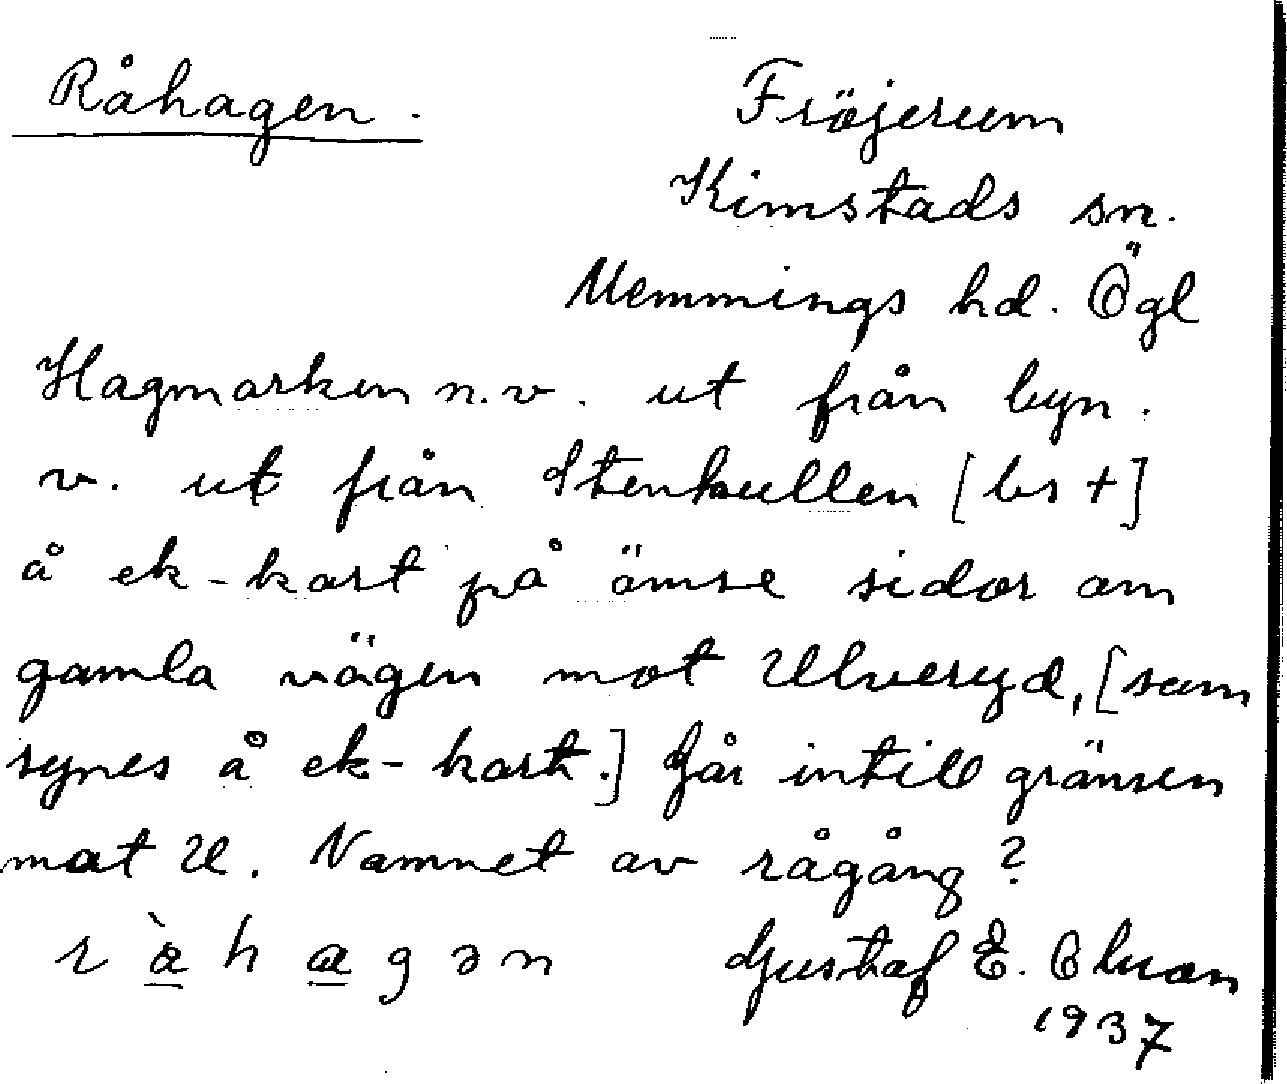 Råhagen.
Fröjerum
Kimstads sn.
Memmings hd. Ögl
Hagmarken n.v. ut från byn.
v. ut från Stenkullen [bs +]
å ek-kart på ömse sidor om
gamla vägen mot Ulveryd, [som
synes å ek-kart.] Går intill gränsen
mot U. Namnet av rågång?
r à h a g ə n
Gustaf E. Olsson
1937